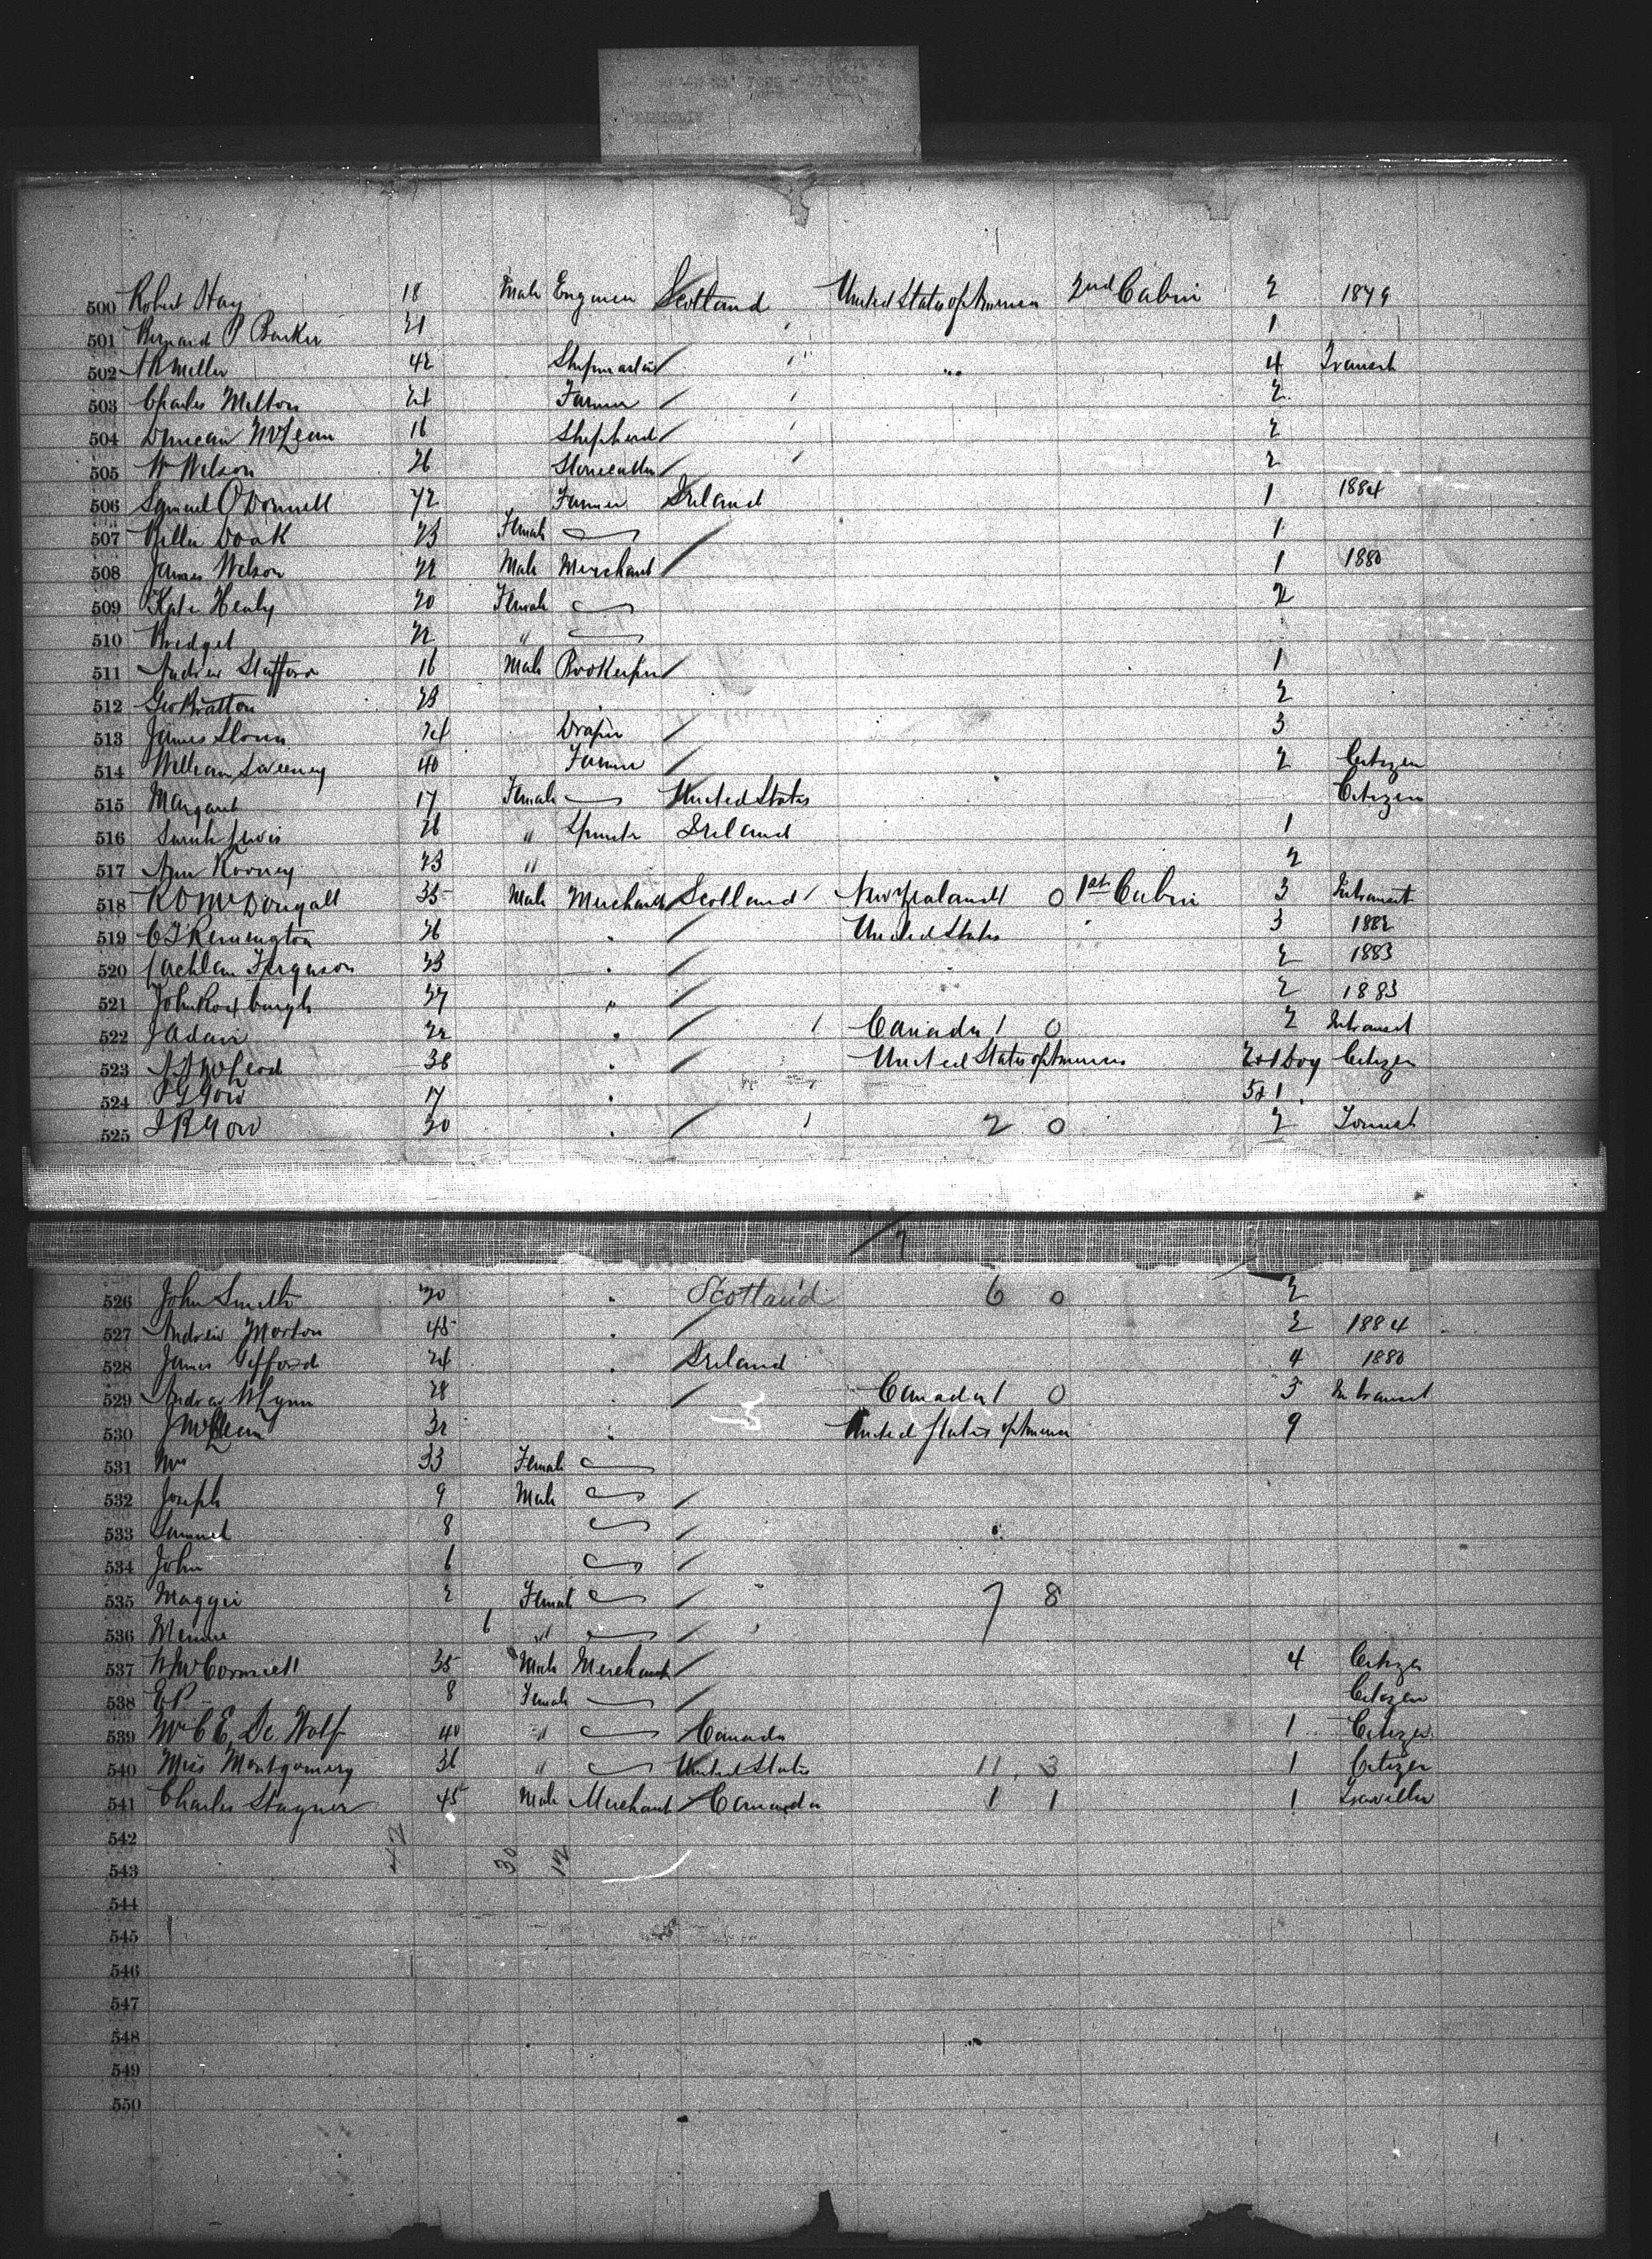 500 Robert Hay 18 Male Engineer Scotland United States of America 2nd Cabin 2 1879
501 Bernard P Barker 21 1
502 Miller 42 Shipmaster 4 Transit
503 Charles Milton 24 Farmer 2
504 Duncan McLean 16 Shepherd 2
505 W Wilson 26 Stonecutter 2
506 Samuel O'Donnell 42 Farmer Ireland 1 1884
507 Bella Doak 23 Female 1
508 James Wilson 22 Male Merchant 1 1880
509 Kate Healy 20 Female 2
510 Bridget 22 "
511 Andrew Stafford 16 Male Bookeeper 1
512 Geo Bratton 23 2
513 James Sloan 24 Draper 3
514 William Sweeney 40 Farmer 2 Citizen
515 Margaret 17 Female United States Citizen
516 Sarah Lewis 26 " Ireland 1
517 Ann Rooney 23 " 2
518 McDougall 35 Male Merchant Scotland New Zealand 0 1st Cabin 3 Intransit
519 Remington 26 United States 3 1882
520 Lachlan Ferguson 23 2 1883
521 John Roxburgh 27 " 2 1883
522 J Adair 22 Canada 1 0 2 Intransit
523 McLeod 38 United States of America 2 & 1 Dog Citizen
524 Gow 17 5 & 1
525 J R Gow 30 2 0 2 Tourist
7
526 John Smith 20 Scotland 6 0 2
527 Andrew Morton 45 2 1884
528 James Gifford 24 Ireland 4 1880
529 Andrew 28 Canada 1 0 3 Intransit
530 J McClean 32 United States of America 9
531 Mrs 33 Female
532 Joseph 9 Male
533 Samuel 8
534 John 6
535 Maggie 2 Female 7 8
536 Minnie 6 "
537 McCormick 35 Male Merchant 4 Citizen
538 E P 8 Female Citizen
539 C E De Wolf 40 " Canada 1 Citizen
540 Miss Montgomery 36 " United States 11 3 1 Citizen
541 Charles Stagner 45 Male Merchant Canada 1 1 1 Traveller
542 42 30 12
543
544
545
546
547
548
549
550